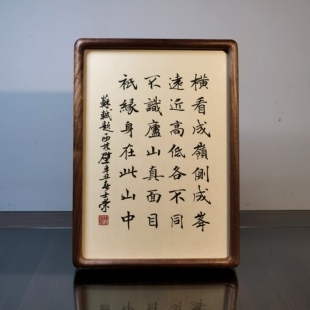 橫看成嶺側成峯
遠近高低各不同
不識廬山真面目
祇緣身在此山中
蘇軾題西林壁